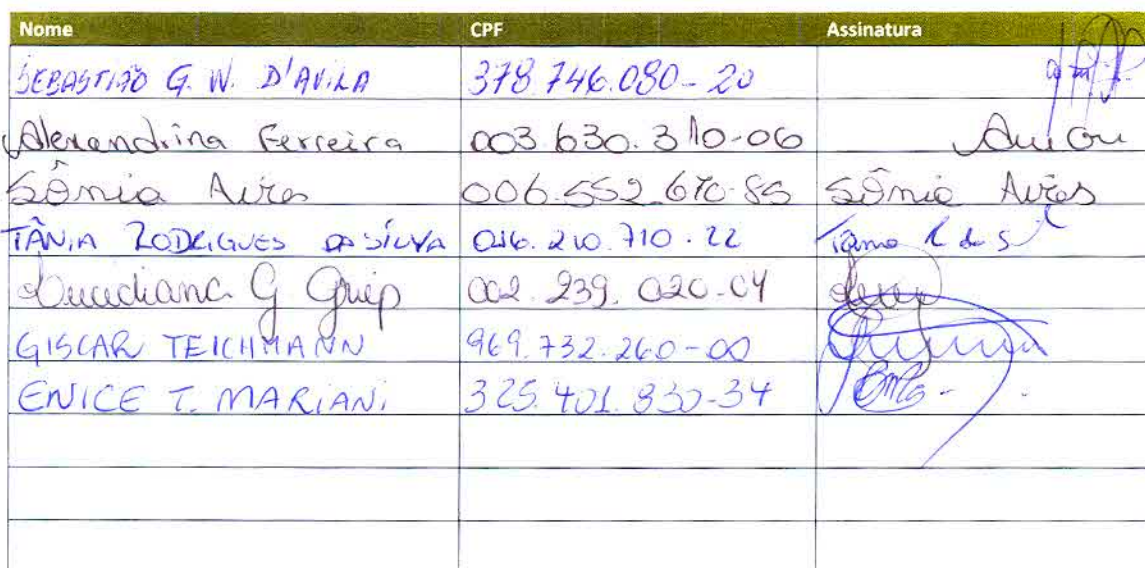 Nome CPF Assinatura
SEBASTIÃO G. W. D'AVILA 378.746.080-20
Alexandrina Ferreira 003.630.310-06
Sônia Aires 006.552.670-85 Sônia Aires
TÂNIA RODRIGUES DA SILVA 016.210.710.22 Tânia R da S
G 002.239.020-04
GISCAR TEICHMANN 969.732.260-00
ENICE T. MARIANI 325.401.830-34